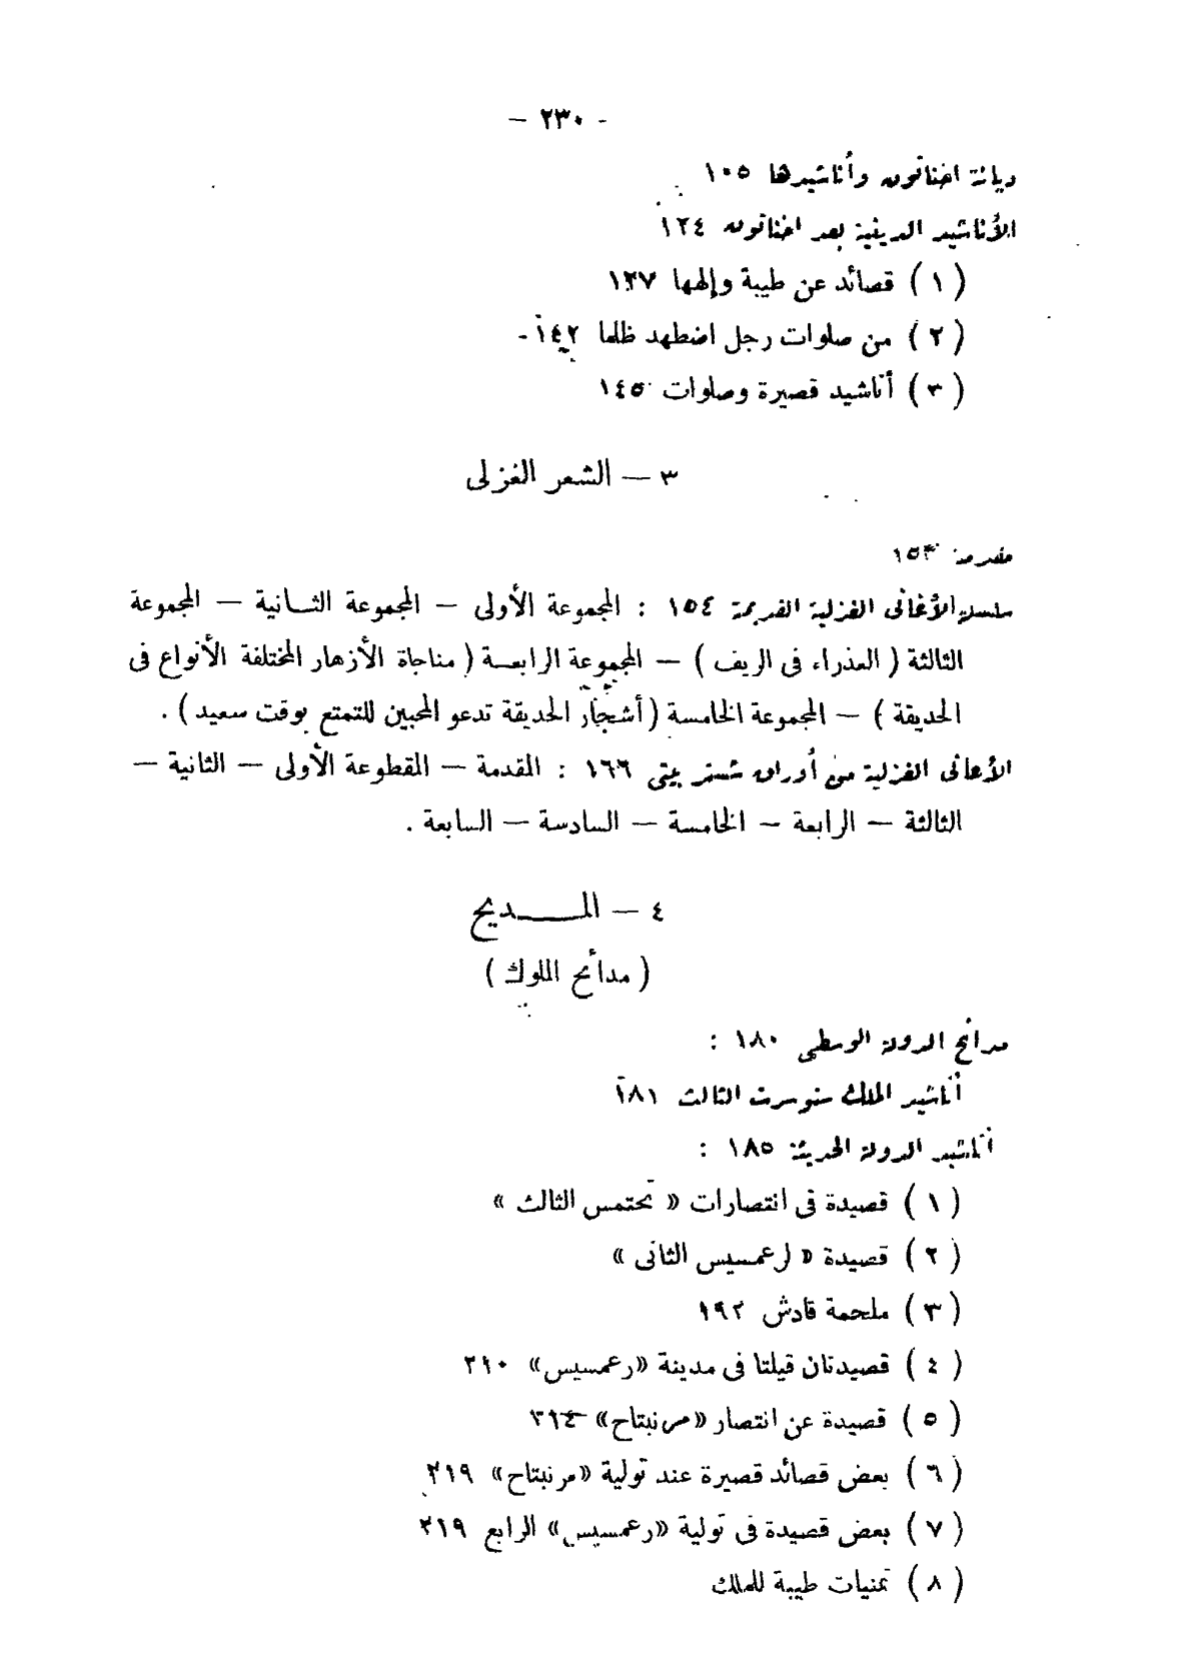 - ٢٣٠ -
ديانة اخناتون وأناشيدها ١٠٥
الأناشيد الدينية بعد اخناتون ١٢٤
( ١ ) قصائد عن طيبة وإلهها ١٢٧
( ٢ ) من صلوات رجل اضطهد ظلما ١٤٢
( ٣ ) أناشيد قصيرة وصلوات ١٤٥
٣ — الشعر الغزلى
مقدمة ١٥٣
سلسلة الأغانى الغزلية القديمة ١٥٤ : المجموعة الأولى — المجموعة الثانية — المجموعة
الثالثة ( العذراء فى الريف ) — المجموعة الرابعة ( مناجاة الأزهار المختلفة الأنواع فى
الحديقة ) — المجموعة الخامسة ( أشجار الحديقة تدعو المحبين للتمتع بوقت سعيد ) .
الأغانى الغزلية من أوراق شستر بيتى ١٦٦ : المقدمة — المقطوعة الأولى — الثانية —
الثالثة — الرابعة — الخامسة — السادسة — السابعة .
٤ — المديح
( مدائح الملوك )
مدائح الدولة الوسطى ١٨٠ :
أناشيد الملك سنوسرت الثالث ١٨١
أناشيد الدولة الحديثة ١٨٥ :
( ١ ) قصيدة فى انتصارات « تحتمس الثالث »
( ٢ ) قصيدة « لرعمسيس الثانى »
( ٣ ) ملحمة قادش ١٩٢
( ٤ ) قصيدتان قيلتا فى مدينة «رعمسيس» ٢١٠
( ٥ ) قصيدة عن انتصار «مرنبتاح» ٢١٤
( ٦ ) بعض قصائد قصيرة عند تولية «مرنبتاح» ٢١٩
( ٧ ) بعض قصيدة فى تولية «رعمسيس» الرابع ٢١٩
( ٨ ) تمنيات طيبة للملك